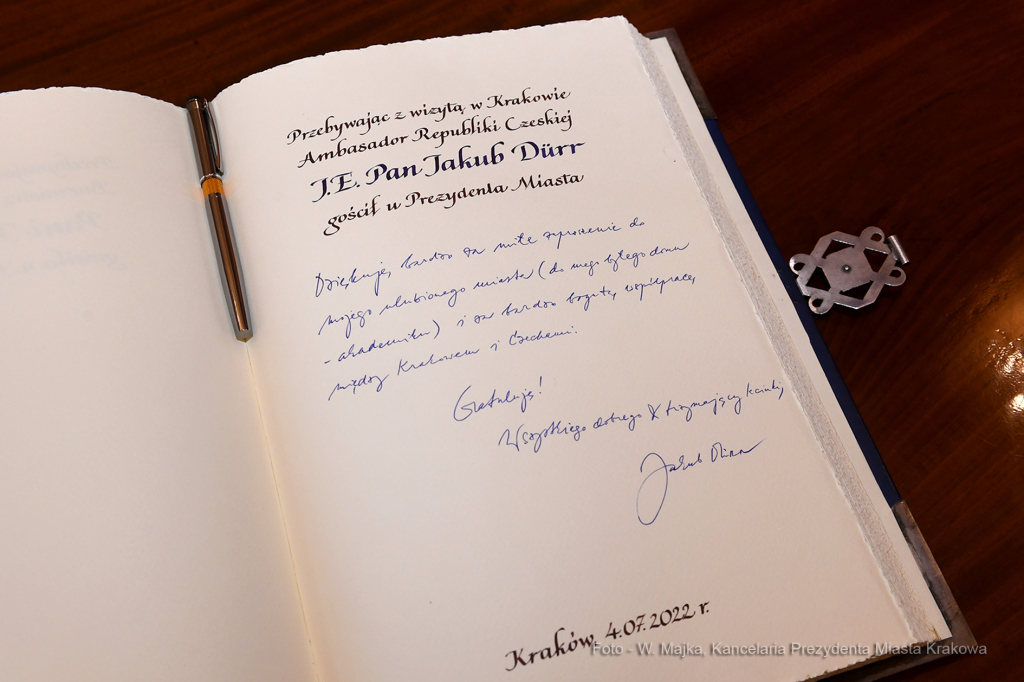 Przebywając z wizytą w Krakowie
Ambasador Republiki Czeskiej
J.E. Pan Jakub Dürr
gościł u Prezydenta Miasta
Dziękuję, bardzo za miłe zaproszenie do
mojego ulubionego miasta (do mego byłego domu
- akademiku) i za bardzo bogatą współpracę
między Krakowem i Czechami.
Gratuluję!
Wszystkiego dobrego X trzymający kciuki,
Jakub Dürr
Kraków, 4.07.2022 r.
Foto - W. Majka, Kancelaria Prezydenta Miasta Krakowa